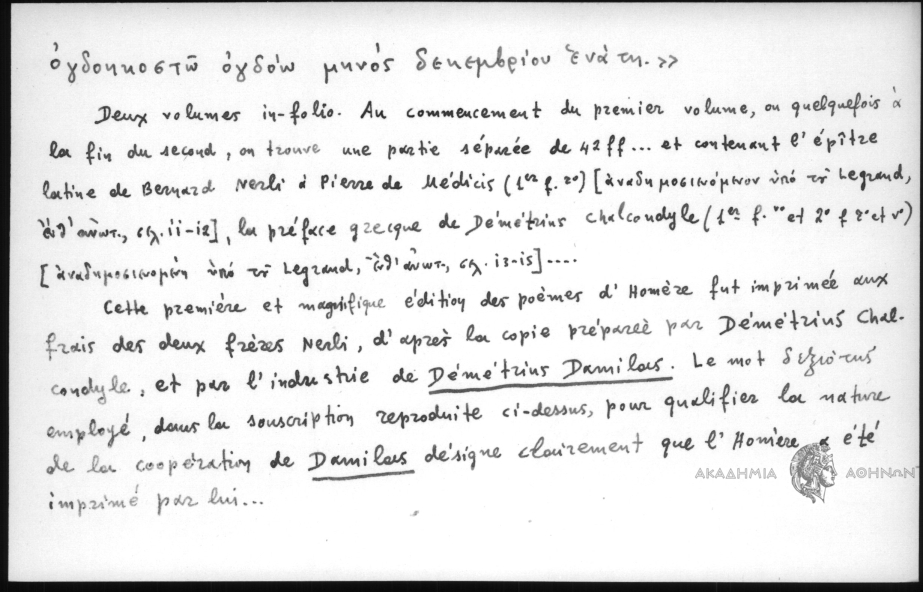 ὀγδοηκοστῶ ὀγδόω μηνός δεκεμβρίου ἐνάτη.»
Deux volumes in-folio. Au commencement du premier volume, ou quelquefois à
la fin du second, on trouve une partie séparée de 42 ff... et contenant l'épître
latine de Bernard Nerli à Pierre de Médicis (1er f. ro) [ἀναδημοσιευόμενον ὑπό τοῦ Legrand,
ἔνθ' ἀνωτ., σελ. 11-12], la préface grecque de Démétrius Chalcondyle (1er f. vo et 2e f ro et vo)
[ἀναδημοσιευομένη ὑπό τοῦ Legrand, ἔνθ' ἀνωτ., σελ. 13-15]....
Cette première et magnifique édition des poèmes d'Homère fut imprimée aux
frais des deux frères Nerli, d'après la copie préparée par Démétrius Chal-
condyle, et par l'industrie de Démétrius Damilas. Le mot δεξιότης
employé, dans la souscription reproduite ci-dessus, pour qualifier la nature
de la coopération de Damilas désigne clairement que l'Homère a été
imprimé par lui...
ΑΚΑΔΗΜΙΑ ΑΘΗΝΩΝ